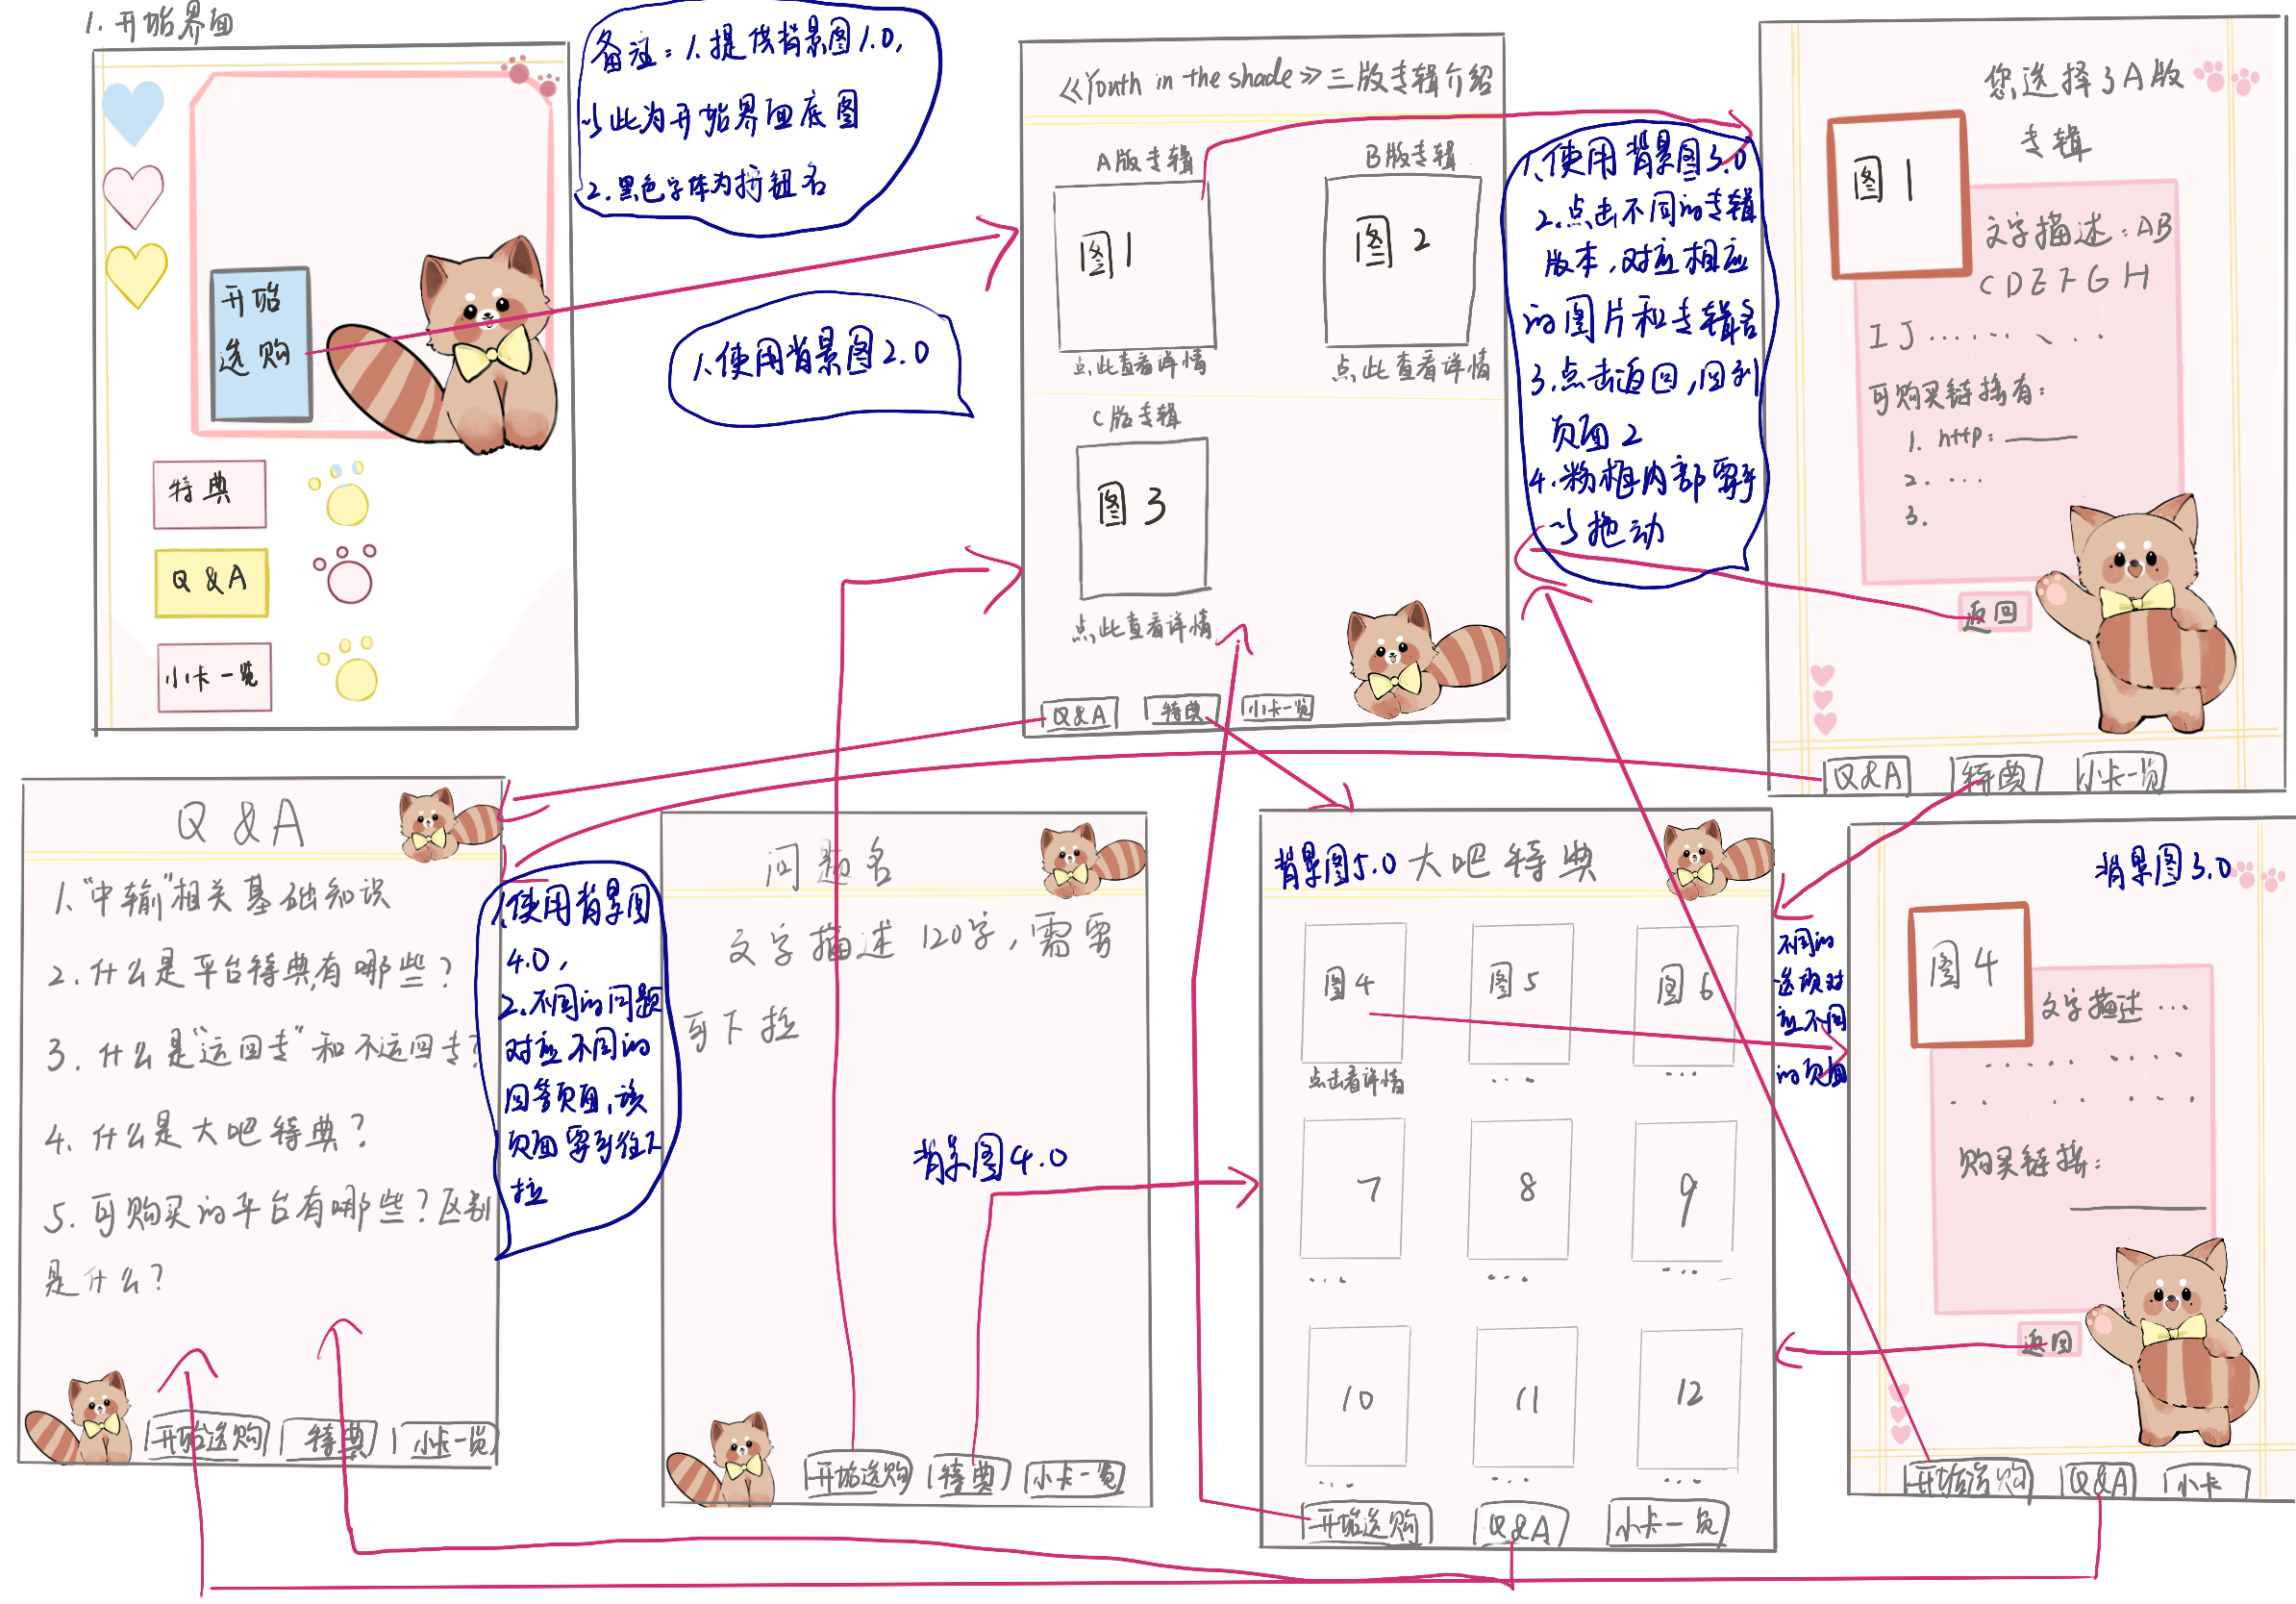 1. 开始界面
开始
选购
特典
Q&A
小卡一览
备注：1.提供背景图1.0,
以此为开始界面底图
2.黑色字体为按钮名
1.使用背景图2.0
《Youth in the shade》三版专辑介绍
A版专辑
B版专辑
图1
图2
点此查看详情
点此查看详情
C版专辑
图3
点此查看详情
Q&A
特典
小卡一览
1.使用背景图3.0
2.点击不同的专辑
版本,对应相应
的图片和专辑名
3.点击返回,回到
页面2
4.粉框内部需可
以拖动
您选择了A版
专辑
图1
文字描述:AB
CDEFGH
IJ......、..
可购买链接有:
1. http:
2. ...
3.
返回
Q&A
特典
小卡一览
Q&A
1.“中输”相关基础知识
2.什么是平台特典,有哪些?
3.什么是“运回专”和不运回专?
4.什么是大吧特典?
5.可购买的平台有哪些?区别
是什么?
开始选购
特典
小卡一览
1.使用背景图
4.0,
2.不同的问题
对应不同的
回答页面,该
页面需可往下
拉
问题名
文字描述120字,需要
可下拉
背景图4.0
开始选购
特典
小卡一览
背景图5.0
大吧特典
图4
图5
图6
点击看详情
...
...
7
8
9
...
...
...
10
11
12
...
...
...
开始选购
Q&A
小卡一览
不同的
选项对
应不同
的页面
背景图3.0
图4
文字描述...
购买链接:
返回
开始选购
Q&A
小卡